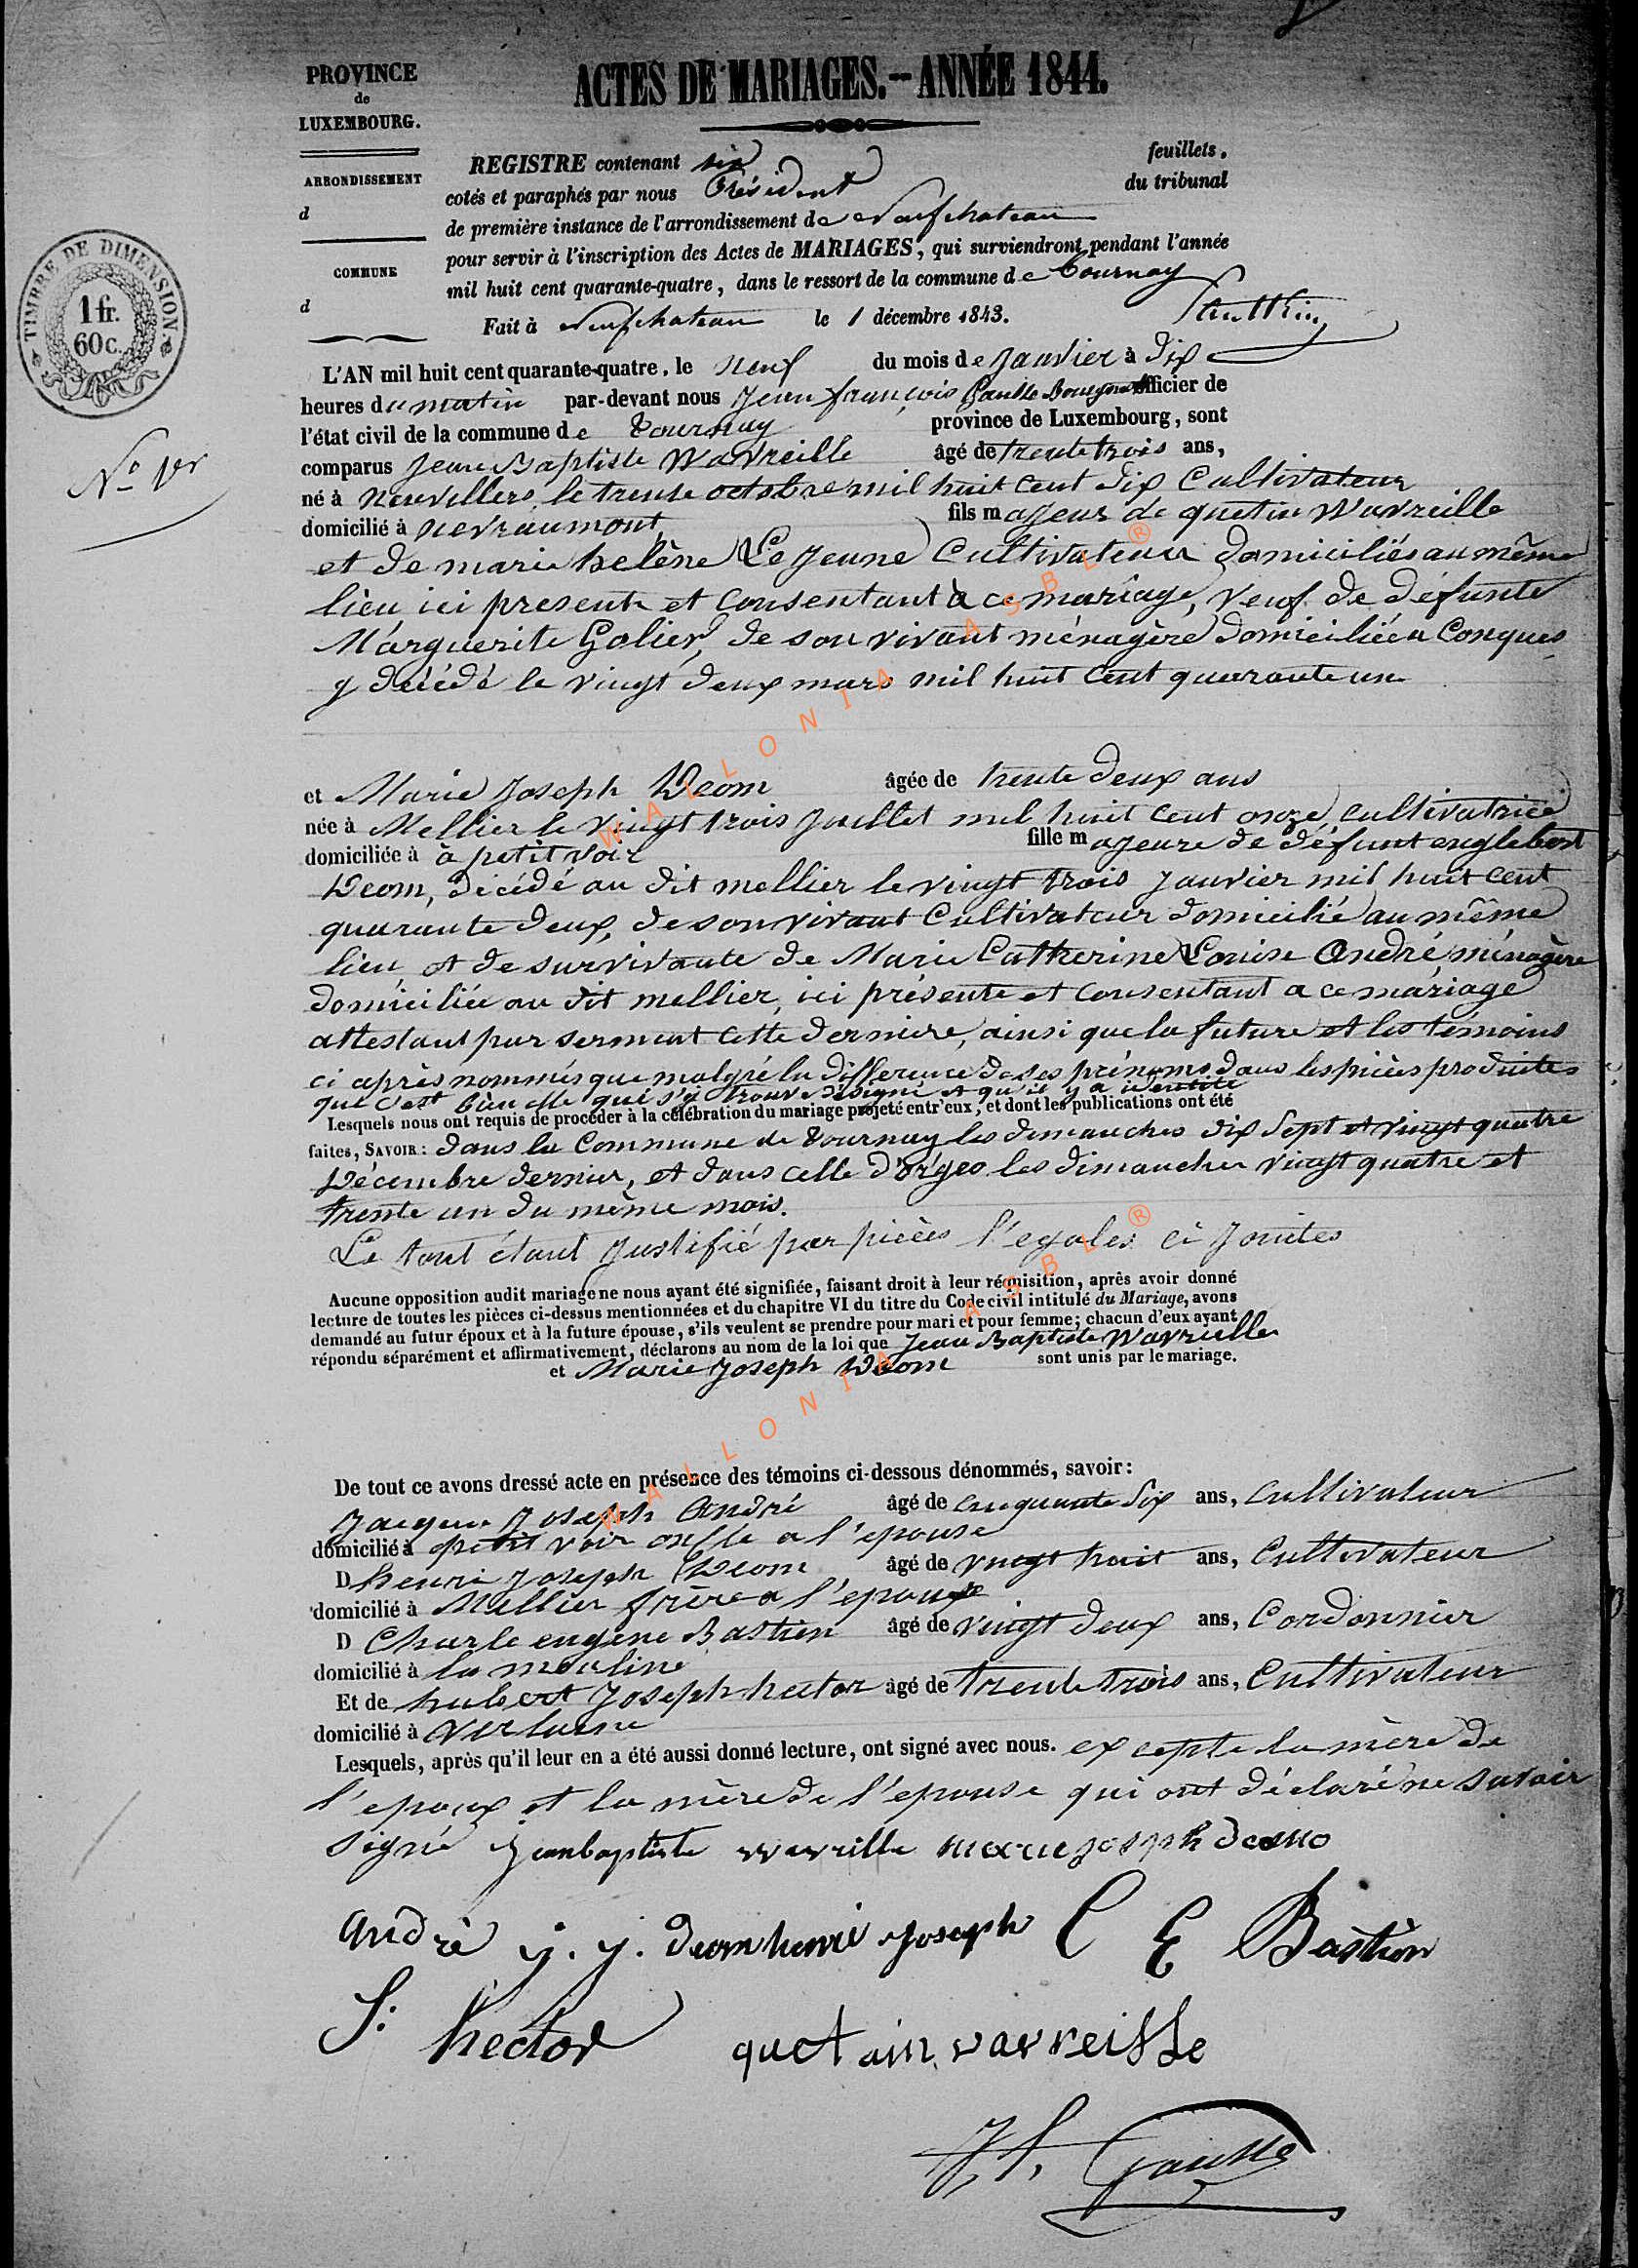 PROVINCE
de
LUXEMBOURG.
ARRONDISSEMENT
d
COMMUNE
d
TIMBRE DE DIMENSION
1 fr.
60 c.
N° 1er
ACTES DE MARIAGES.-- ANNÉE 1844.
REGISTRE contenant six feuillets,
cotés et paraphés par nous Président du tribunal
de première instance de l'arrondissement de Neufchateau
pour servir à l'inscription des Actes de MARIAGES, qui surviendront pendant l'année
mil huit cent quarante-quatre, dans le ressort de la commune de Tournay
Fait à Neufchateau le 1 décembre 1843.
L'AN mil huit cent quarante-quatre, le neuf du mois de Janvier à dix
heures du matin par-devant nous Jean françois officier de
l'état civil de la commune de Tournay province de Luxembourg, sont
comparus Jean Baptiste Wavreille âgé de trente trois ans,
né à neuvillers le trente octobre mil huit cent dix Cultivateur
domicilié à nevraumont fils majeur de quetin Wavreille
et de marie helène Le Jeune Cultivateur domiciliés au même
lieu ici presente et Consentant à ce mariage, veuf de défunte
Marguerite Golier, de son vivant ménagère domiciliée a Conques
y décédé le vingt deux mars mil huit cent quarante un
et Marie Joseph Deom âgée de trente deux ans
née à Mellier le vingt trois Juillet mil huit cent onze cultivatrice
domiciliée à à petit voir fille majeure de défunt englebert
Deom, décédé au dit mellier le vingt trois Janvier mil huit cent
quarante deux, de son vivant Cultivateur domicilié au même
lieu et de survivante de Marie Catherine Louise André ménagère
domiciliée au dit mellier, ici présente et consentant a ce mariage
attestant par serment cette derniere, ainsi que la future et les témoins
ci après nommés que malgré la difference de ses prénoms dans les pièces produites
que c'est bien elle qui s'y trouve désigné et qu'il y a identité
Lesquels nous ont requis de procéder à la célébration du mariage projeté entr'eux, et dont les publications ont été
faites, SAVOIR: dans la Commune de Tournay les dimanches dix Sept et vingt quatre
Décembre dernier, et dans celle d'orgeo les dimanches vingt quatre et
trente un du même mois.
Le tout étant Justifié par pièces l'egales ci Jointes
Aucune opposition audit mariage ne nous ayant été signifiée, faisant droit à leur réquisition, après avoir donné
lecture de toutes les pièces ci-dessus mentionnées et du chapitre VI du titre du Code civil intitulé du Mariage, avons
demandé au futur époux et à la future épouse, s'ils veulent se prendre pour mari et pour femme; chacun d'eux ayant
répondu séparément et affirmativement, déclarons au nom de la loi que Jean Baptiste Wavreille
et Marie Joseph Deom sont unis par le mariage.
De tout ce avons dressé acte en présence des témoins ci-dessous dénommés, savoir:
Jacques Joseph André âgé de cinquante Six ans, Cultivateur
domicilié à petit voir oncle a l'epouse
D henri Joseph Deom âgé de vingt huit ans, Cultivateur
domicilié à Mellier frère a l'epouse
D Charle eugene Bastien âgé de vingt deux ans, Cordonnier
domicilié à la mouline
Et de hubert Joseph hector âgé de trente trois ans, Cultivateur
domicilié à verlaine
Lesquels, après qu'il leur en a été aussi donné lecture, ont signé avec nous. excepte la mère de
l'epoux et la mère de l'epouse qui ont déclaré ne savoir
signé Jeanbaptiste wavreille marie joseph deom
andré j. j. deom henri Joseph C E Bastien
J: hector quetain wavreille
WALLONIA ASBL ®
WALLONIA ASBL ®